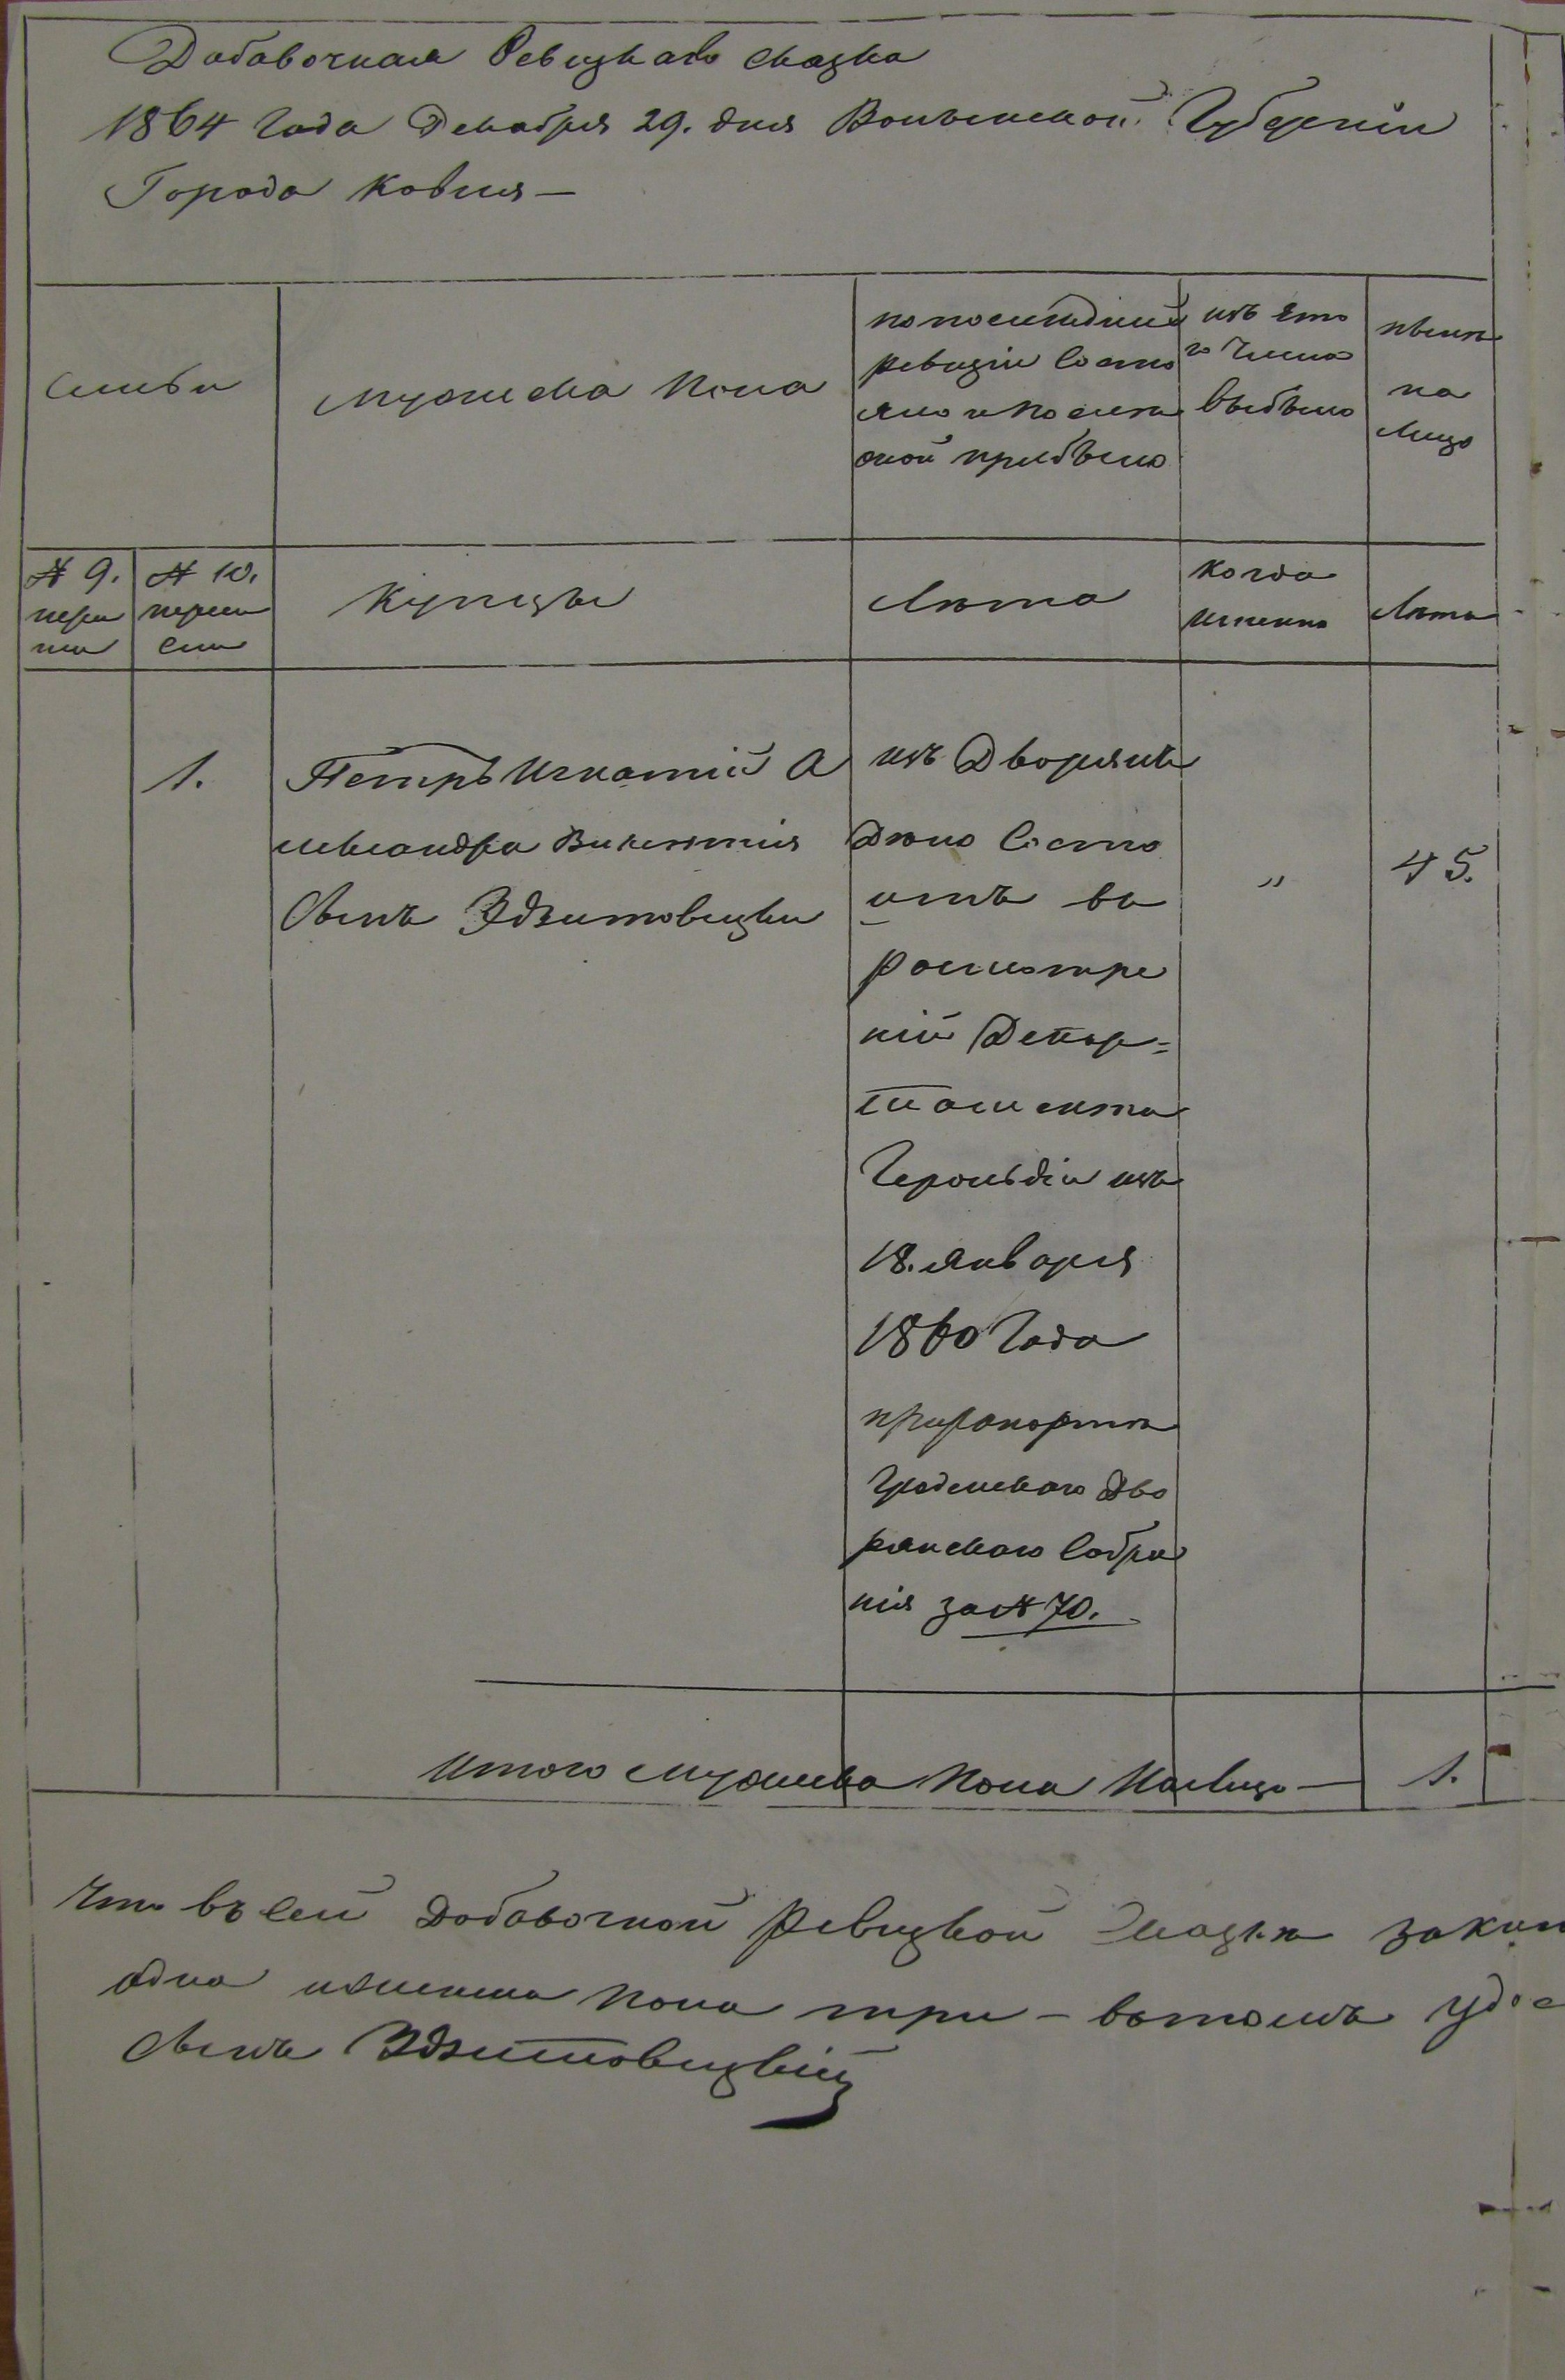 Добавочная Ревизкаю сказка
1864 Года Декабря 29. дня Волынской Губерніи
Города Ковля —
Семьи
мужска Пола
по последней
ревизіи состо
яло и после
оной прибыло
изъ это
го числа
выбыло
ныне
на
лицо
№ 9.
№ 10.
Купцы
Лета
когда
именно
Лета
1.
Петръ Игнатій А
лександра Викентія
Сынъ Здзитовецки
изъ Дворянъ
Дело Состо
итъ въ
разсмотре
ніи Депар=
тамента
Герольдіи изъ
18. января
1860 Года
при рапорте
Гродненскаго Дво
рянскаго Собра
нія за № 70.
"
45.
Итого мужска Пола На лицо — 1.
Что въ сей Добавочной Ревизкой Сказке
одна пола три — въ томъ удос
Сынъ Здзитовецкій